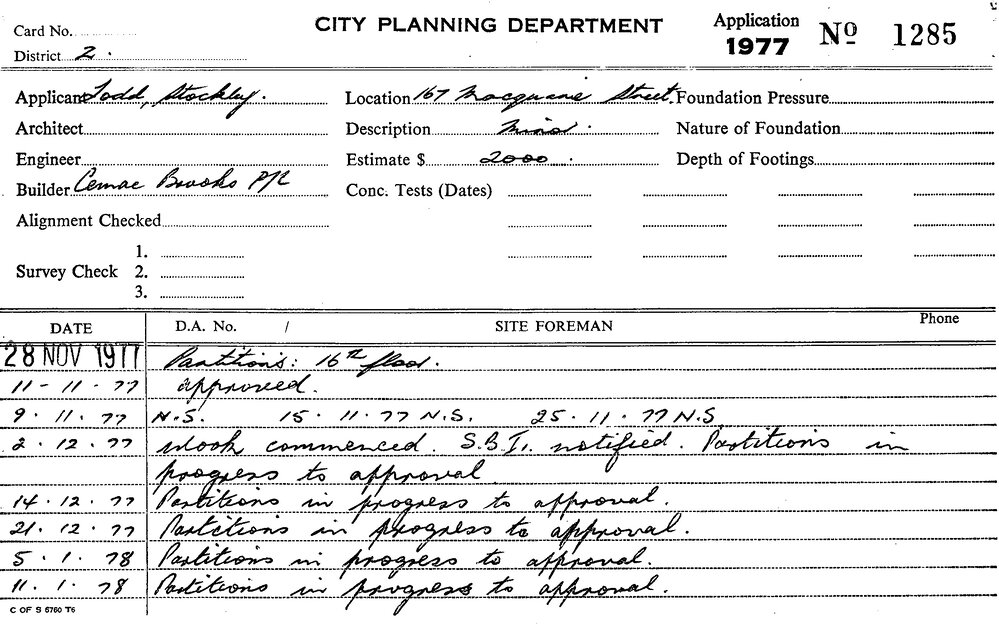 CITY PLANNING DEPARTMENT
Application 1977 No 1285
Card No.
District 2.
Applicant Todd, Stockley.
Location 167 Macquarie Street.
Foundation Pressure
Architect
Description Minor.
Nature of Foundation
Engineer
Estimate $ 2000.
Depth of Footings
Builder Cemac Brooks P/L
Conc. Tests (Dates)
Alignment Checked
Survey Check
1.
2.
3.
DATE D.A. No. / SITE FOREMAN Phone
28 NOV 1977 Partitions: 16th floor.
11-11-77 approved.
9.11.77 N.S. 15.11.77 N.S. 25.11.77 N.S
2.12.77 Work commenced. S.B.I. notified. Partitions in
progress to approval
14.12.77 Partitions in progress to approval.
21.12.77 Partitions in progress to approval.
5.1.78 Partitions in progress to approval.
11.1.78 Partitions in progress to approval.
C OF S 5760 T6